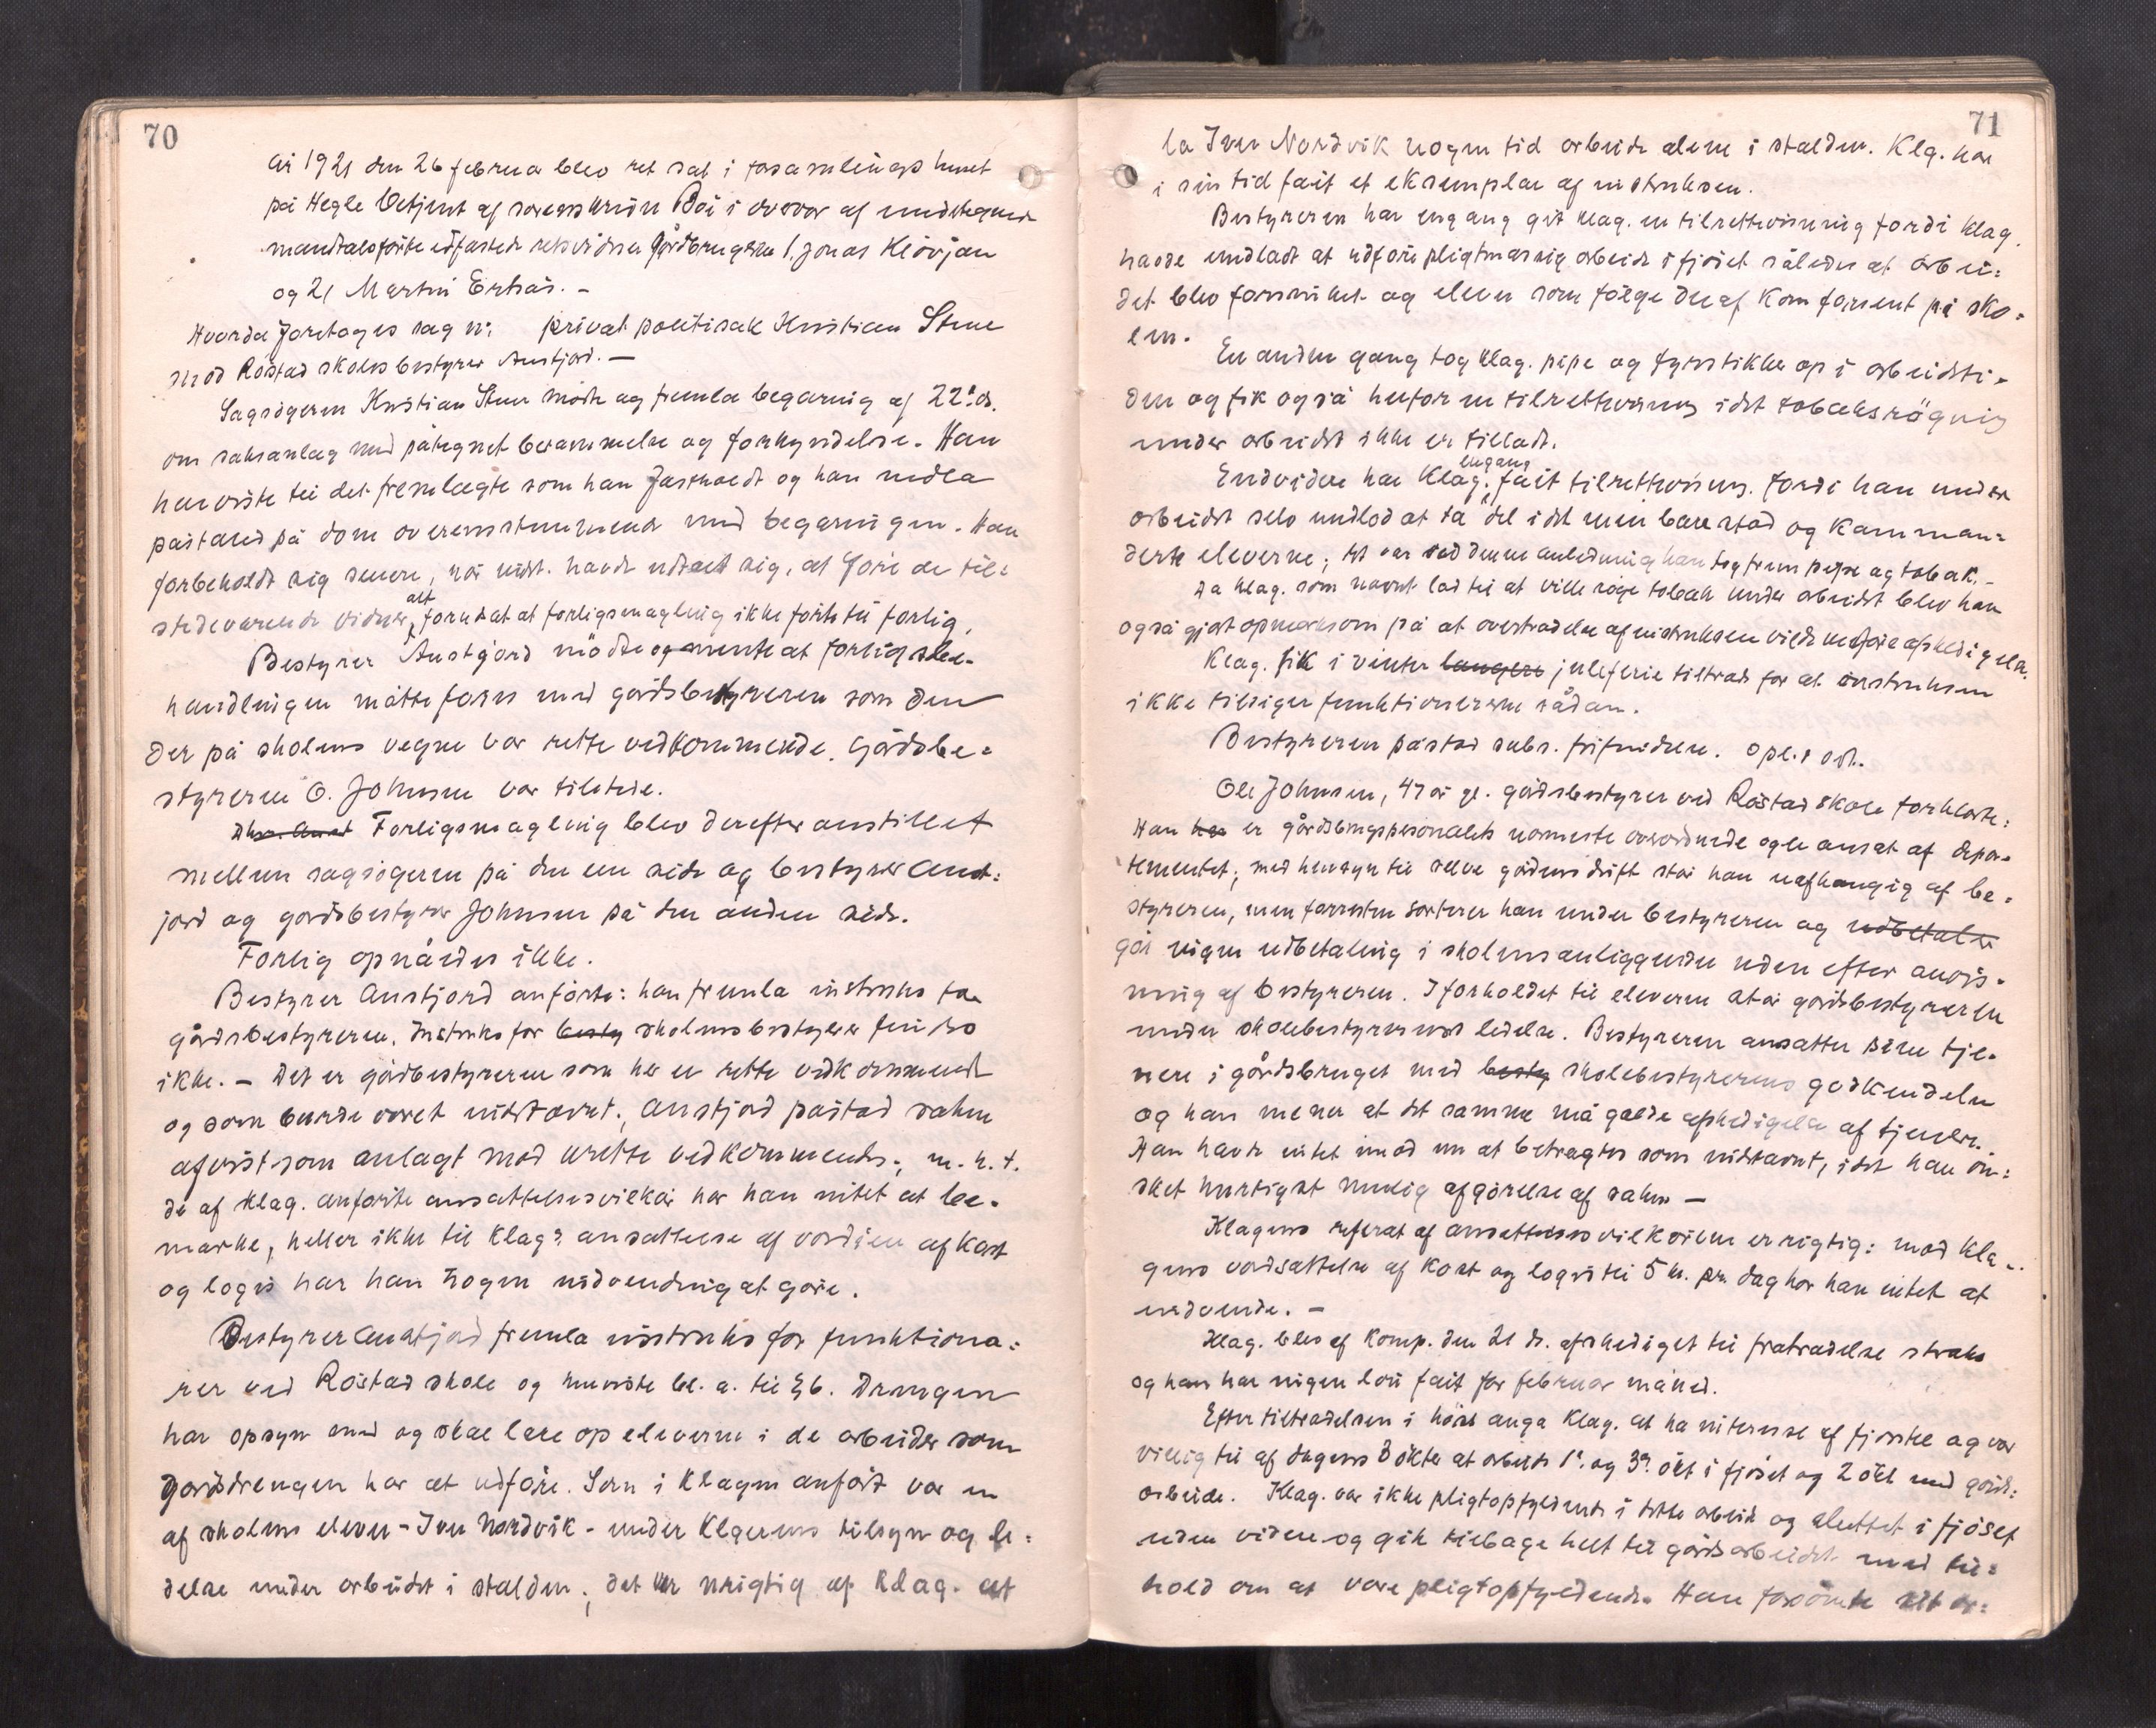 70
År 1921 den 26 februar blev ret sat i forsamlingshuset
på Hegle betjent af sorenskriver Bøe i overvær af undertegnede
mandtalsførte edfæstede retsvidner gårdbrugerne 1, Jonas Kløvjan
og 2, Martin Ertsås. –
Hvorda foretoges sag nr: privat politisak Kristian Stene
mod Röstad skoles bestyrer Austjord. –
Sagsögeren Kristian Stene mödte og fremla begæring af 22' ds.
om saksanlæg med påtegnet berammelse og forkyndelse. Han
henviste til det fremlagte som han fastholdt og han nedla
påstand på dom overensstemmende med begæringen. Han
forbeholdt sig senere, når indst. havde uttalt sig, at före de til-
stedeværende vidner, alt forudsat at forligsmægling ikke förte til forlig.
Bestyrer Austjord mödte og mente at forligsbe-
handlingen måtte foregå med gårdsbestyreren som den
der på skolens vegne var rette vedkommende. Gårdsbe-
styreren O. Johnsen var tilstede.
Forligsmægling blev derefter anstillet
mellem sagsögeren på den ene side og bestyrer Aust-
jord og gårdsbestyrer Johnsen på den anden side.
Forlig opnåedes ikke.
Bestyrer Austjord anförte: han fremla instruks for
gårdsbestyreren. Instruks for besty skolens bestyrer findes
ikke. – Det er gårdbestyreren som her er rette vedkommende
og som burde været indstævnt. Austjord påstod saken
afvist som anlagt mod urette vedkommende; m. h. t.
de af klag. anförte ansættelsesvilkår har han intet at be-
mærke, heller ikke til klag's ansættelse af værdien af kost
og logis har han nogen indvending at göre.
Bestyrer Austjord fremla instruks for funktionæ-
rer ved Röstad skole og henviste bl. a. til § 6. Drengen
har opsyn med og skal lære op eleverne i de arbeider som
gårdsdrengen har at udföre. Som i klagen anfört var en
af skolens elever – Iver Nordvik – under klagerens tilsyn og le-
delse under arbeidet i stalden; det er urigtig af klag. at
71
la Iver Nordvik nogen tid arbeide alene i stalden. Klg. har
i sin tid fåt et eksemplar af instruksen.
Bestyreren har engang git klag. en tilrettevisning fordi klag.
havde undladt at udföre pligtmæssig arbeide i fjöset således at arbei-
det blev forsinket og elever som fölge deraf kom forsent på sko-
len.
En anden gang tog klag. pipe og fyrstikker op i arbeidsti-
den og fik også herfor en tilrettevisning idet tobaksrögning
under arbeidet ikke er tilladt.
Endvidere har klag. engang fåt tilrettevisning fordi han under
arbeidet selv undlod at ta del i det men bare stod og komman-
derte eleverne; det var ved denne anledning han tog frem pipe og tobak. –
Da klag. som nævnt lod til at ville röge tobak under arbeidet blev han
også gjort opmerksom på at overtrædelse af instruksen vilde medföre afskedigelse.
Klag. fik i vinter længere juleferie tiltrods for at instruksen
ikke tilsiger funktionærerne sådan.
Bestyreren påstod subs. frifindelse. Opl. & vedt.
Ole Johnsen, 47 år gl. gårdsbestyrer ved Röstad skole forklarte:
Han har er gårdsbrugspersonalets nærmeste overordnede og er ansat af depar-
tementet; med hensyn til selve gårdens drift står han uafhængig af be-
styreren, men forresten sorterer han under bestyreren og udbetaler
gör ingen udbetaling i skolens anliggender uden efter anvis-
ning af bestyreren. I forholdet til eleverne står gårdsbestyreren
under skolebestyrerens ledelse. Bestyreren ansætter selv tje-
nere i gårdsbruget med besty skolebestyrerens godkendelse
og han mener at det samme må gælde afskedigelse af tjenere.
Han havde intet imod nu at betragtes som indstævnt, idet han ön-
sket hurtigst mulig afgörelse af saken –
Klagerens referat af ansettelsesvilkårene er rigtig: mod kla-
gerens værdsættelse af kost og logis til 5 kr. pr. dag har han intet at
indvende. –
Klag. blev af komp. den 21 ds. afskediget til fratrædelse straks
og han har ingen lön fåt for februar måned.
Efter tiltrædelsen i höst anga klag. at ha interesse af fjösstel og var
villig til af dagens 3 ökter at arbeide 1. og 3. ökt i fjöset og 2 ökt med gårds-
arbeide. Klag. var ikke pligtopfyldende i dette arbeide og sluttet i fjöset
uden videre og gik tilbage helt til gårdsarbeidet med til-
hold om at være pligtopfyldende. Han forsömte sit ar-